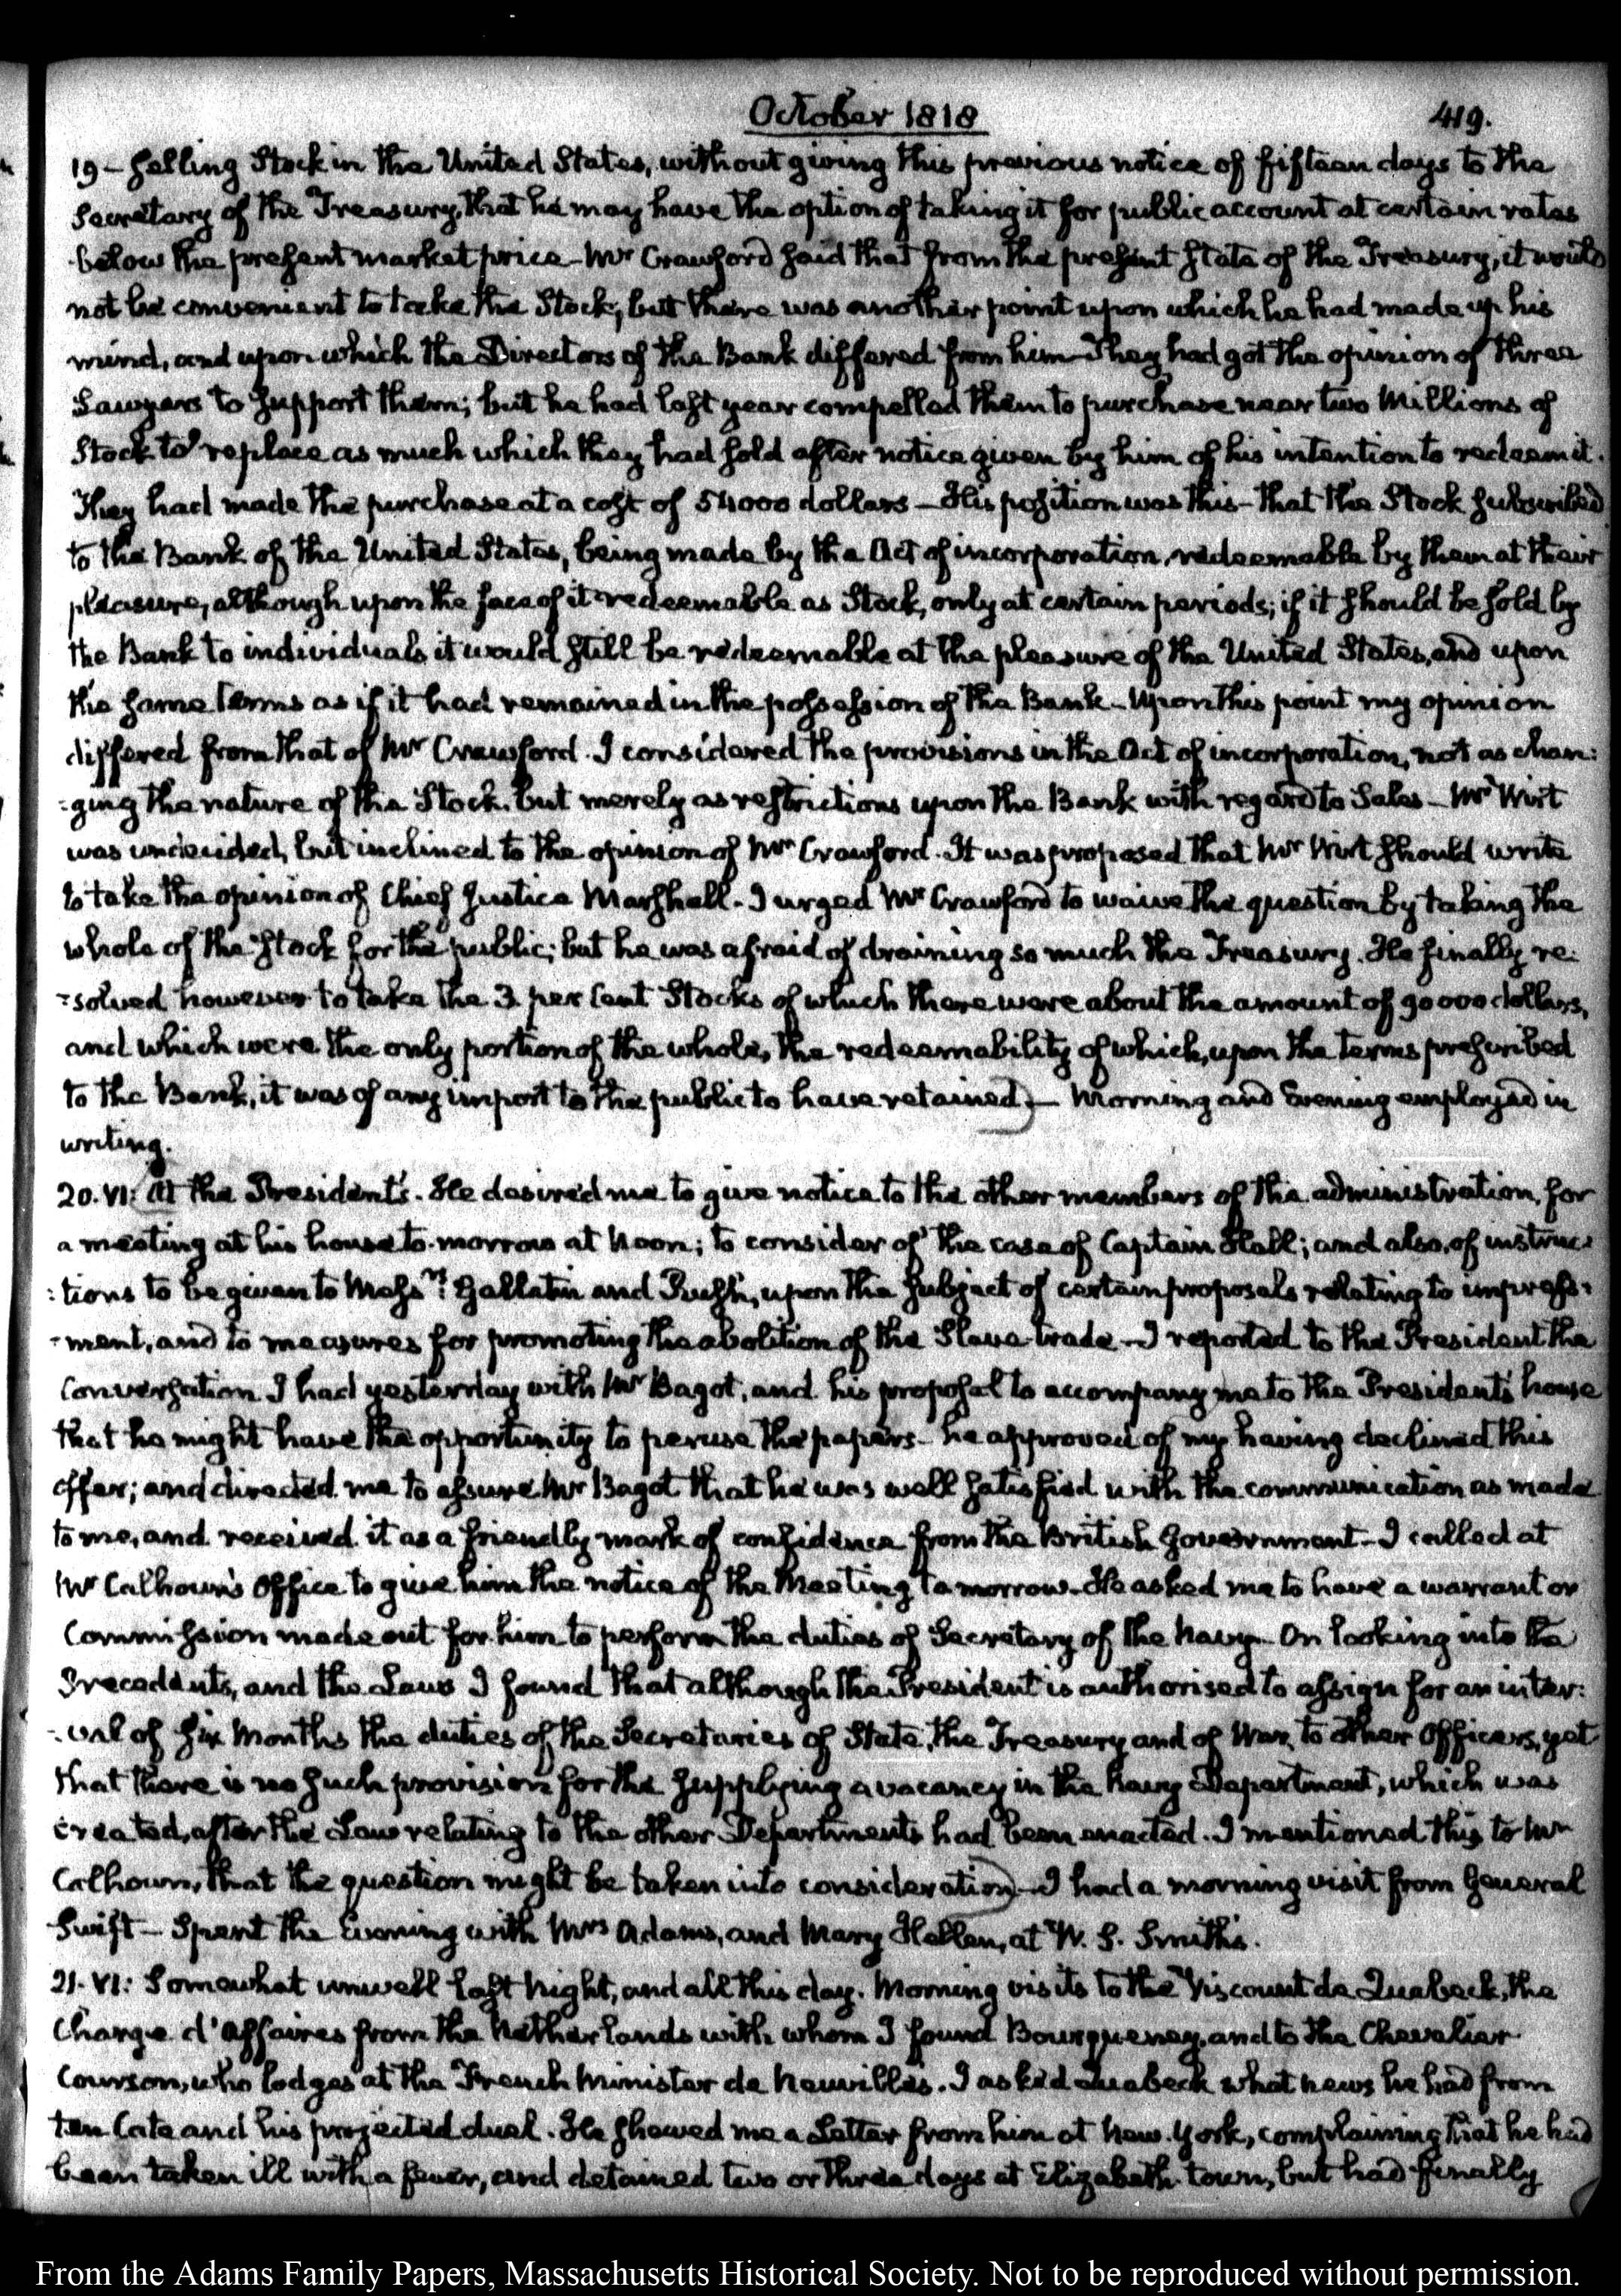 October 1818
419.
19 – selling Stock in the United States, without giving this previous notice of fifteen days to the
Secretary of the Treasury, that he may have the option of taking it for public account at certain rates
below the present market price – Mr Crawford said that from the present state of the Treasury, it would
not be convenient to take the Stock, but there was another point upon which he had made up his
mind, and upon which the Directors of the Bank differed from him – They had got the opinion of three
Lawyers to support them; but he had last year compelled them to purchase near two Millions of
Stock to replace as much which they had sold after notice given by him of his intention to redeem it.
They had made the purchase at a cost of 54000 dollars – His position was this – that the Stock subscribed
to the Bank of the United States, being made by the Act of incorporation, redeemable by them at their
pleasure, although upon the face of it redeemable as Stock, only at certain periods; if it should be sold by
the Bank to individuals it would still be redeemable at the pleasure of the United States, and upon
the same terms as if it had remained in the possession of the Bank – Upon this point my opinion
differed from that of Mr Crawford. I considered the provisions in the Act of incorporation, not as chan:
:ging the nature of the Stock, but merely as restrictions upon the Bank with regard to Sales – Mr Wirt
was undecided, but inclined to the opinion of Mr Crawford. It was proposed that Mr Wirt should write
to take the opinion of Chief Justice Marshall. I urged Mr Crawford to waive the question by taking the
whole of the Stock for the public; but he was afraid of draining so much the Treasury. He finally re:
:solved however to take the 3. per Cent Stocks of which there were about the amount of 90000 dollars,
and which were the only portion of the whole, the redeemability of which, upon the terms prescribed
to the Bank, it was of any import to the public to have retained) – Morning and Evening employed in
writing.
20. VI: At the President's. He desired me to give notice to the other members of the administration, for
a meeting at his house to-morrow at Noon; to consider of the case of Captain Hall; and also, of instruc:
:tions to be given to Messrs Gallatin and Rush, upon the subject of certain proposals relating to impress:
:ment, and to measures for promoting the abolition of the Slave-trade – I reported to the President the
conversation I had yesterday with Mr Bagot, and his proposal to accompany me to the President's house
that he might have the opportunity to peruse the papers – he approved of my having declined this
offer; and directed me to assure Mr Bagot that he was well satisfied with the communication as made
to me, and received it as a friendly mark of confidence from the British Government – I called at
Mr Calhoun's Office to give him the notice of the Meeting tomorrow. He asked me to have a warrant or
Commission made out for him to perform the duties of Secretary of the Navy – On looking into the
Precedents, and the Laws I found that although the President is authorised to assign for an inter:
:val of six Months the duties of the Secretaries of State, the Treasury and of War, to other Officers, yet
that there is no such provision for the supplying a vacancy in the Navy Department, which was
created, after the Law relating to the other Departments had been enacted. I mentioned this to Mr
Calhoun, that the question might be taken into consideration) – I had a morning visit from General
Swift – Spent the Evening with Mrs Adams, and Mary Hellen, at W. S. Smith's.
21. VI: Somewhat unwell last Night, and all this day. Morning visits to the Viscount de Quabeck, the
Chargé d'affaires from the Netherlands with whom I found Bourqueney, and to the Chevalier
Courson, who lodges at the French Minister de Neuville's. I asked Quabeck what news he had from
ten Cate and his projected duel. He shewed me a Letter from him at New-York, complaining that he had
been taken ill with a fever, and detained two or three days at Elizabeth-town, but had finally
From the Adams Family Papers, Massachusetts Historical Society. Not to be reproduced without permission.